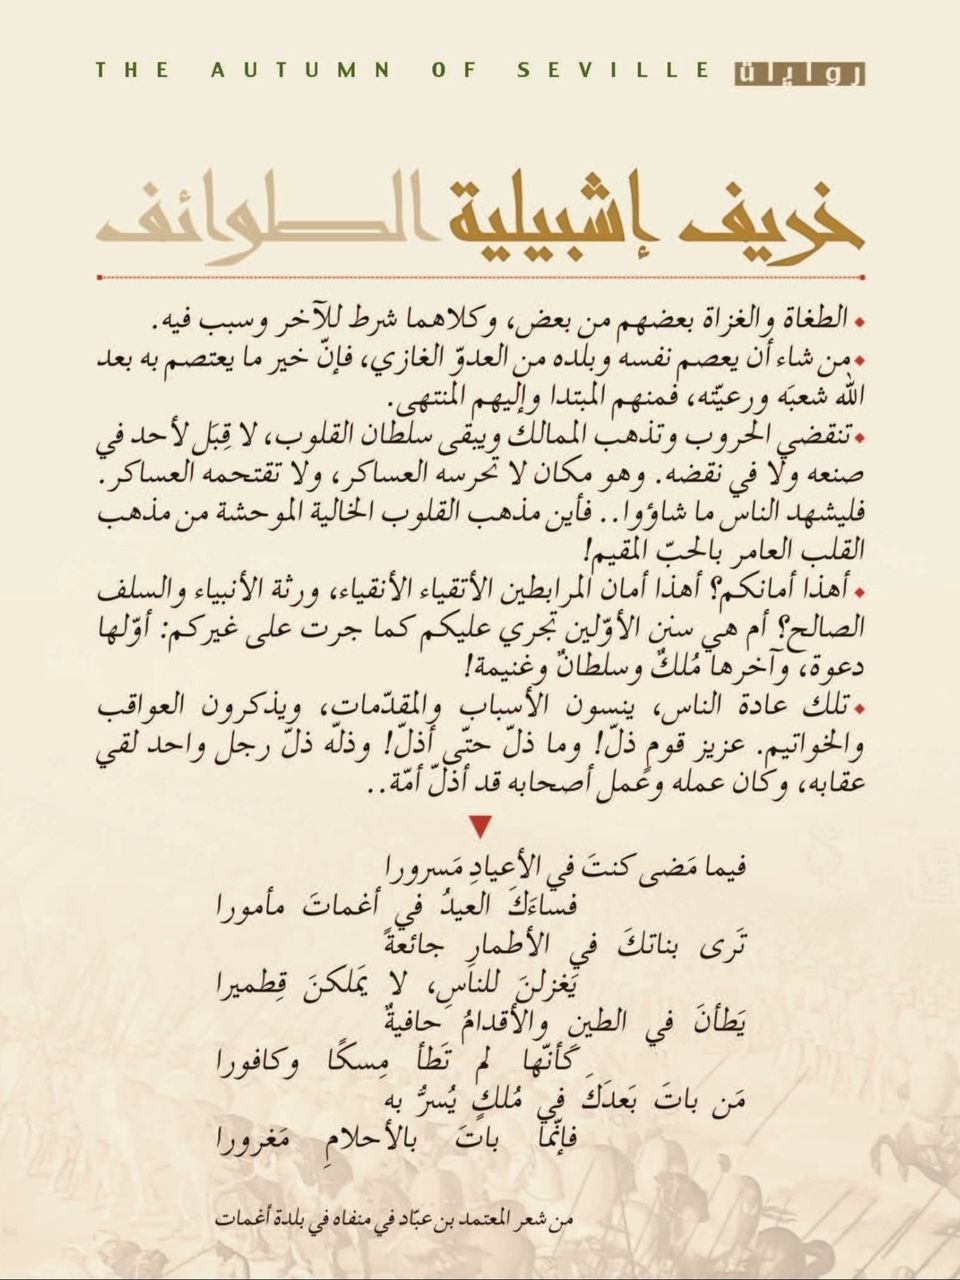 THE AUTUMN OF SEVILLE روايات
خريف إشبيلية الطوائف
الطغاة والغزاة بعضهم من بعض، وكلاهما شرط للآخر وسبب فيه.
من شاء أن يعصم نفسه وبلده من العدوّ الغازي، فإنّ خير ما يعتصم به بعد
الله شعبَه ورعيّته، فمنهم المبتدا وإليهم المنتهى.
تنقضي الحروب وتذهب الممالك ويبقى سلطان القلوب، لا قِبَل لأحد في
صنعه ولا في نقضه. وهو مكان لا تحرسه العساكر، ولا تقتحمه العساكر.
فليشهد الناس ما شاؤوا.. فأين مذهب القلوب الخالية الموحشة من مذهب
القلب العامر بالحبّ المقيم!
أهذا أمانكم؟ أهذا أمان المرابطين الأتقياء الأنقياء، ورثة الأنبياء والسلف
الصالح؟ أم هي سنن الأوّلين تجري عليكم كما جرت على غيركم: أوّلها
دعوة، وآخرها مُلكٌ وسلطانٌ وغنيمة!
تلك عادة الناس، ينسون الأسباب والمقدّمات، ويذكرون العواقب
والخواتيم. عزيز قومٍ ذلّ! وما ذلّ حتّى أذلّ! وذلّه ذلّ رجل واحد لقي
عقابه، وكان عمله وعمل أصحابه قد أذلّ أمّة..
فيما مَضى كنتَ في الأعيادِ مَسرورا
فساءَكَ العيدُ في أغماتَ مأمورا
تَرى بناتكَ في الأطمارِ جائعةً
يَغزلنَ للناسِ، لا يَملكنَ قِطميرا
يَطأنَ في الطين والأقدامُ حافيةٌ
كَأنّها لم تَطأ مِسكًا وكافورا
مَن باتَ بَعدَكَ في مُلكٍ يُسرُّ به
فإنّما باتَ بالأحلامِ مَغرورا
من شعر المعتمد بن عبّاد في منفاه في بلدة أغمات